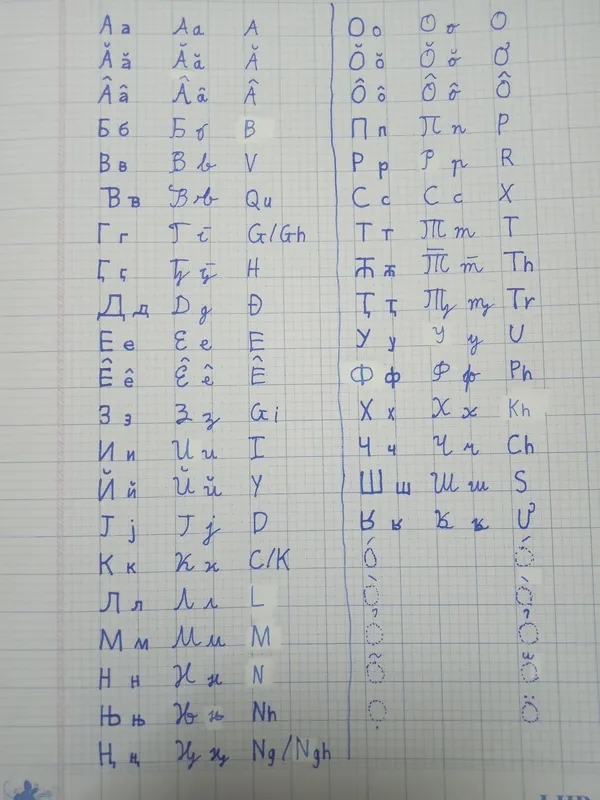 А а А а A
Ӑ ӑ Ӑ ӑ Ă
А̂ а̂ А̂ а̂ Â
Б б Б б B
В в В в V
В в В в Qu
Г г Г г G/Gh
Ӷ ӷ Ӷ ӷ H
Д д Д д Đ
Е е Е е E
Е̂ е̂ Е̂ е̂ Ê
З з З з Gi
И и И и I
Й й Й й Y
Ј ј Ј ј D
К к К к C/K
Л л Л л L
М м М м M
Н н Н н N
Њ њ Њ њ Nh
Ң ң Ң ң Ng/Ngh
О о О о O
О̆ о̆ О̆ о̆ Ơ
О̂ о̂ О̂ о̂ Ô
П п П п P
Р р Р р R
С с С с X
Т т Т т T
Th
Ҭ ҭ Ҭ ҭ Tr
У у У у U
Ф ф Ф ф Ph
Х х Х х Kh
Ч ч Ч ч Ch
Ш ш Ш ш S
Ư